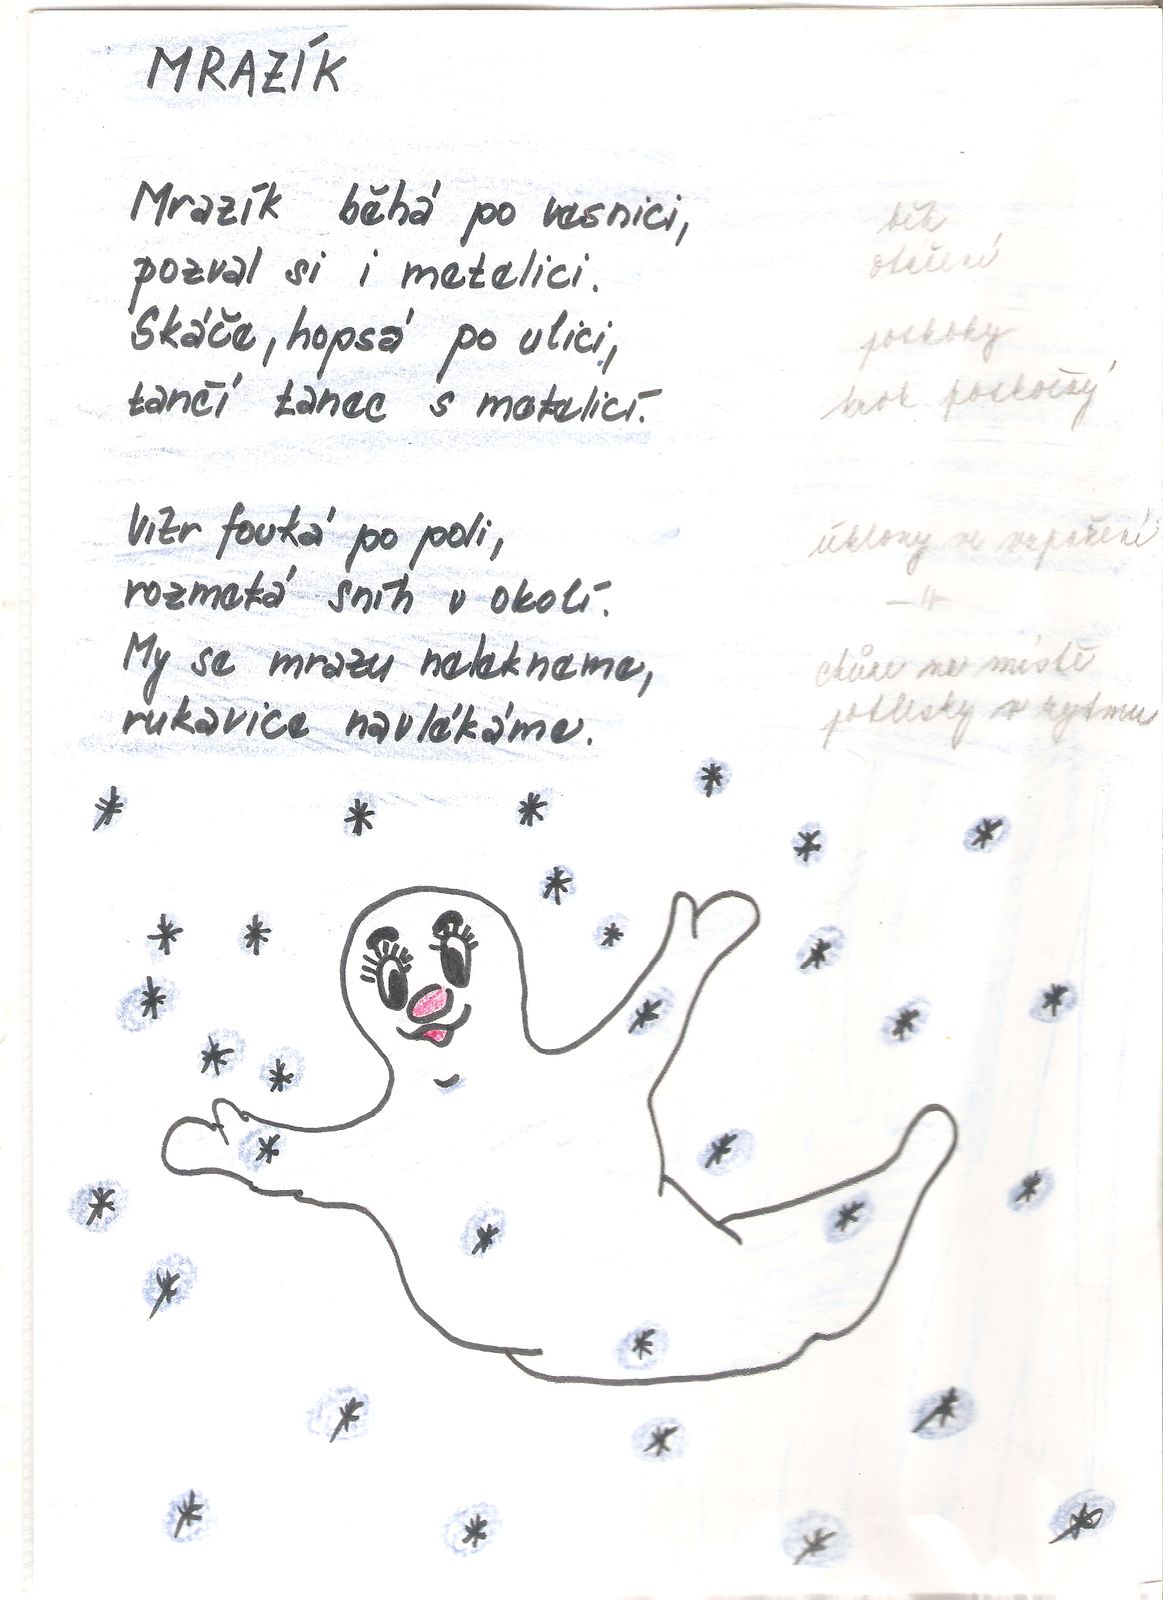 MRAZÍK
Mrazík běhá po vesnici,
běh
pozval si i metelici.
otáčení
Skáče, hopsá po ulici,
poskoky
tančí tanec s metelicí.
krok poskočný
Vítr fouká po poli,
úklony ve vzpažení
rozmetá sníh v okolí.
-"-
My se mrazu nelekneme,
chůze na místě
rukavice navlékáme.
potlesky v rytmu